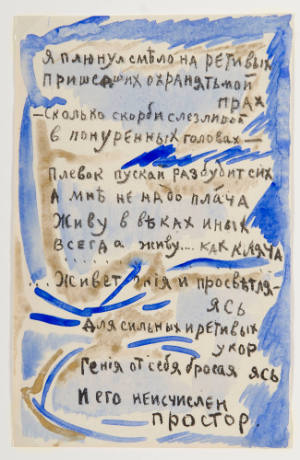 Я плюнул смѣло на ретивых
Пришедших охранять мой
прах
— Сколько скорби слезливой
в понуренных головах —
Плевок пускай разбудит сих
А мнѣ не надо плача
Живу в вѣках иных
Всегда живу.... как кляча
. . . . . . .
... Живет гнія и просвѣтля-
ясь
Для сильных и ретивых
укор
Генія от себя бросая ясь
И его неисчислен
простор.